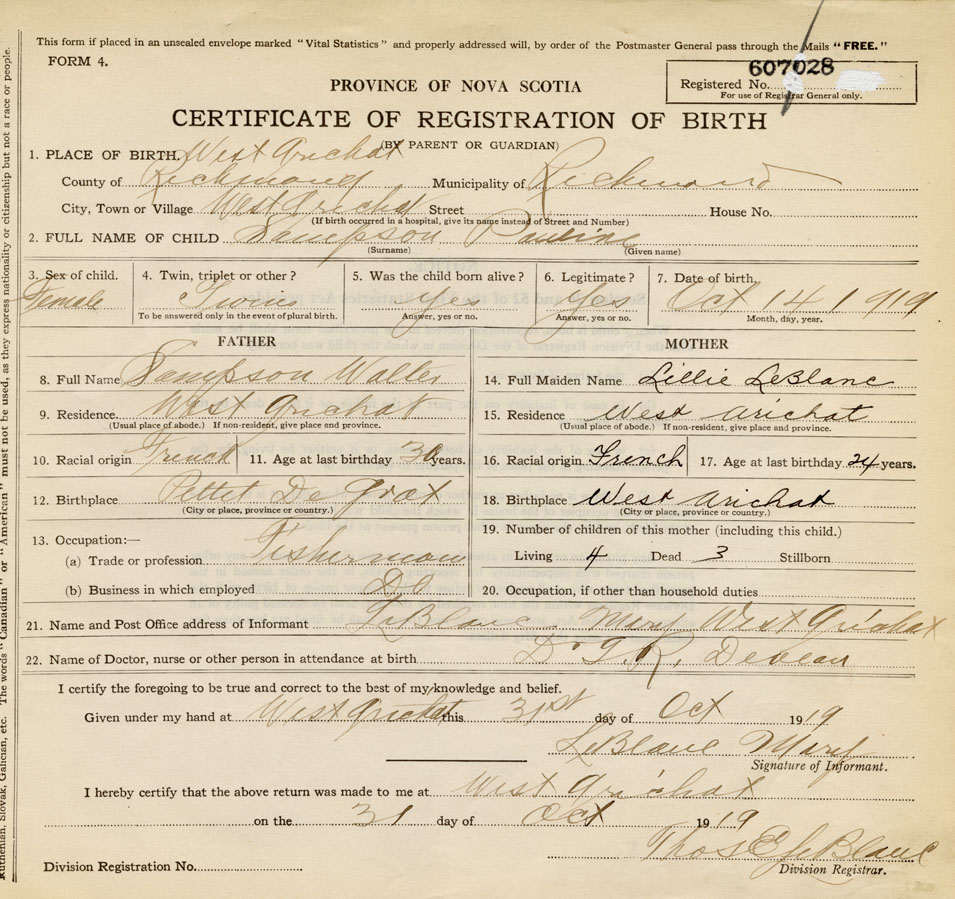 This form if placed in an unsealed envelope marked "Vital Statistics" and properly addressed will, by order of the Postmaster General pass through the Mails "FREE."
FORM 4.
607028
Registered No.
For use of Registrar General only.
PROVINCE OF NOVA SCOTIA
CERTIFICATE OF REGISTRATION OF BIRTH
(BY PARENT OR GUARDIAN)
1. PLACE OF BIRTH. West Arichat
County of Richmond Municipality of Richmond
City, Town or Village West Arichat Street House No.
(If birth occurred in a hospital, give its name instead of Street and Number)
2. FULL NAME OF CHILD Sampson Pauline
(Surname) (Given name)
3. Sex of child. 4. Twin, triplet or other? 5. Was the child born alive? 6. Legitimate? 7. Date of birth.
Female Twin Yes Yes Oct 14 1919
To be answered only in the event of plural birth. Answer, yes or no. Answer, yes or no. Month, day, year.
FATHER MOTHER
8. Full Name Sampson Walter 14. Full Maiden Name Lillie LeBlanc
9. Residence. West Arichat 15. Residence West Arichat
(Usual place of abode.) If non-resident, give place and province. (Usual place of abode.) If non-resident, give place and province.
10. Racial origin French 11. Age at last birthday 30 years. 16. Racial origin French 17. Age at last birthday 24 years.
12. Birthplace Pettet De Grat 18. Birthplace West Arichat
(City or place, province or country.) (City or place, province or country.)
13. Occupation:— 19. Number of children of this mother (including this child.)
(a) Trade or profession Fisherman Living 4 Dead 3 Stillborn
(b) Business in which employed Do 20. Occupation, if other than household duties
21. Name and Post Office address of Informant LeBlanc Mary West Arichat
22. Name of Doctor, nurse or other person in attendance at birth Dr
I certify the foregoing to be true and correct to the best of my knowledge and belief.
Given under my hand at West Arichat this 31st day of Oct 1919
LeBlanc Mary
Signature of Informant.
I hereby certify that the above return was made to me at West Arichat
on the 31 day of Oct 1919
Thos E LeBlanc
Division Registrar.
Division Registration No.
Ruthenian, Slovak, Galician, etc. The words "Canadian" or "American" must not be used, as they express nationality or citizenship but not a race or people.